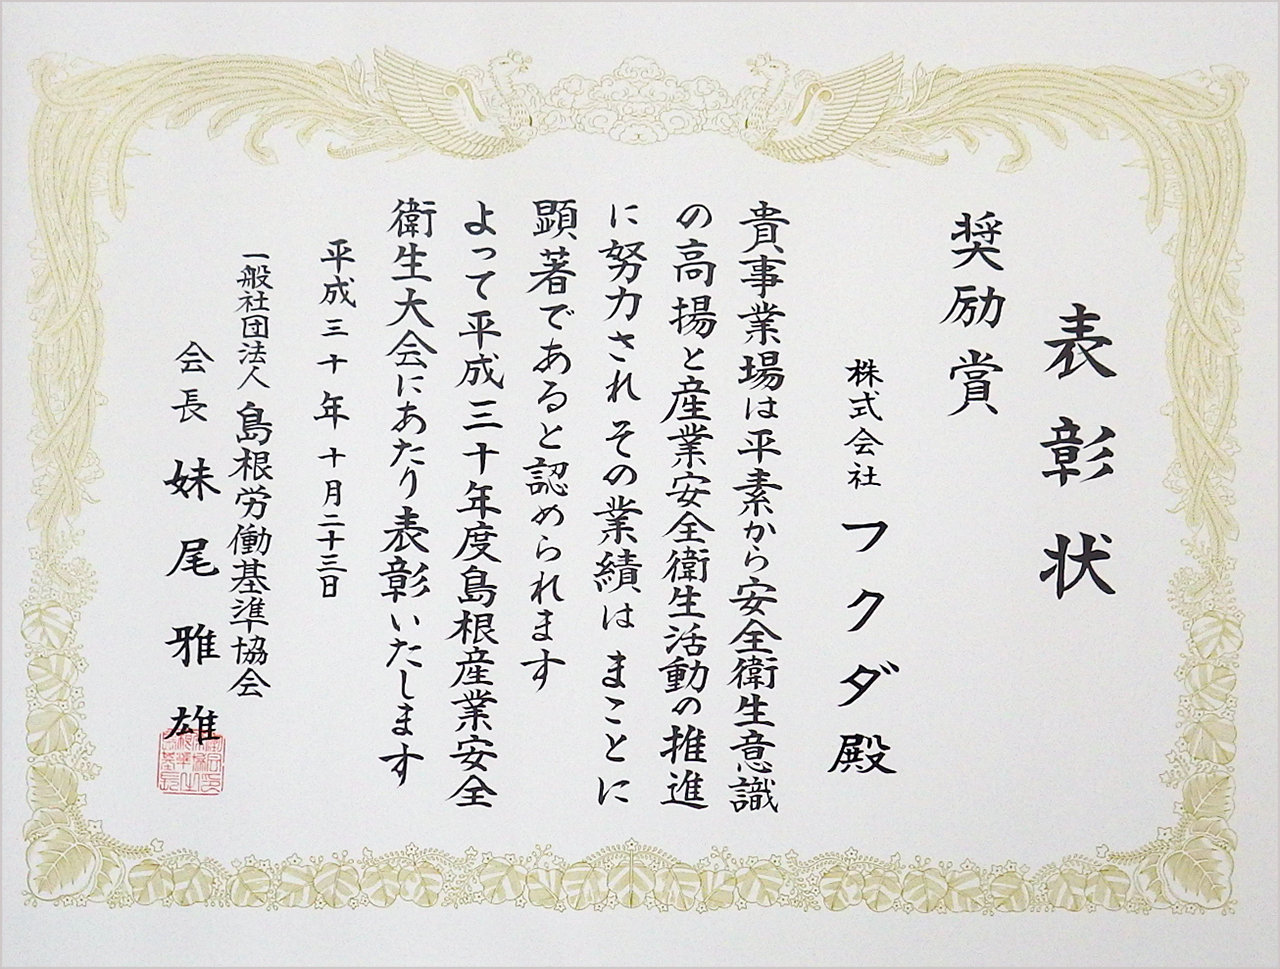 表彰状
奨励賞
株式会社フクダ殿
貴事業場は平素から安全衛生意識
の高揚と産業安全衛生活動の推進
に努力されその業績はまことに
顕著であると認められます
よって平成三十年度島根産業安全
衛生大会にあたり表彰いたします
平成三十年十月二十三日
一般社団法人島根労働基準協会
会長妹尾雅雄